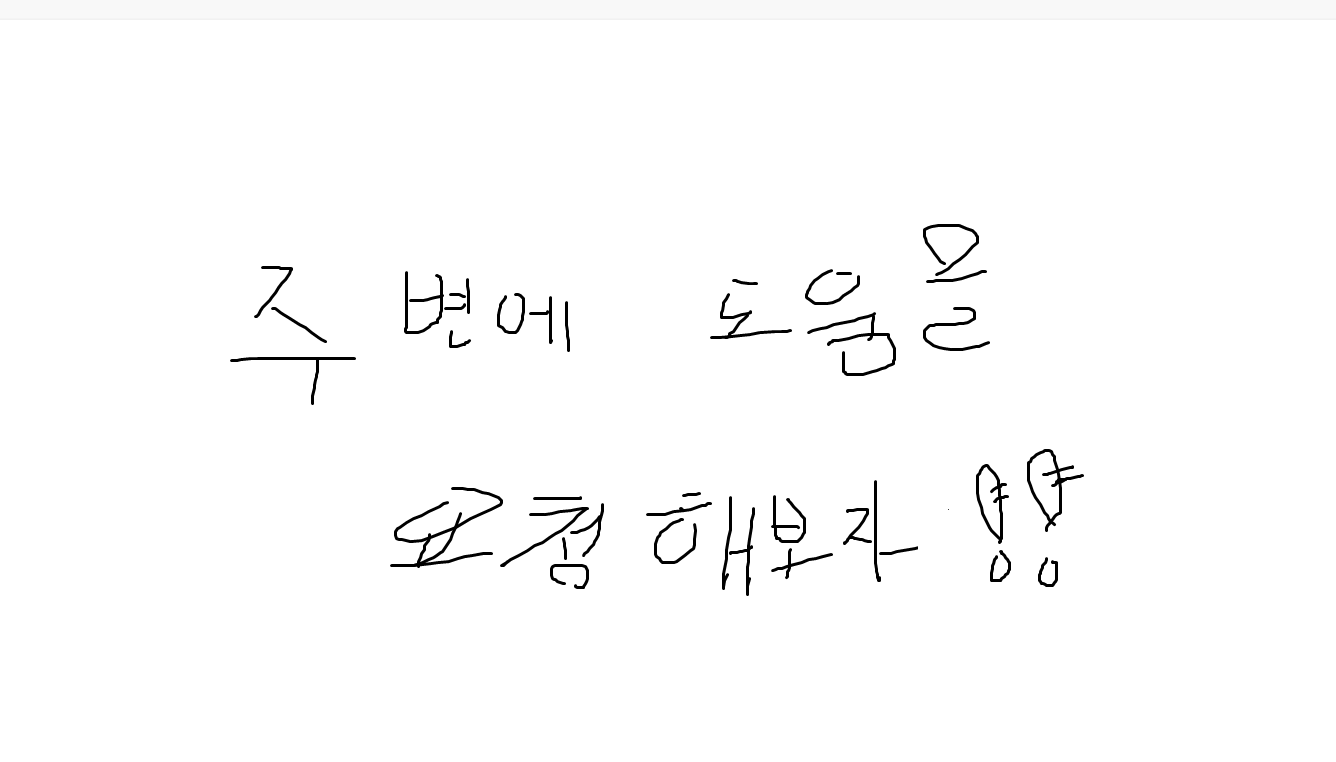 주변에 도움을
요청해보자